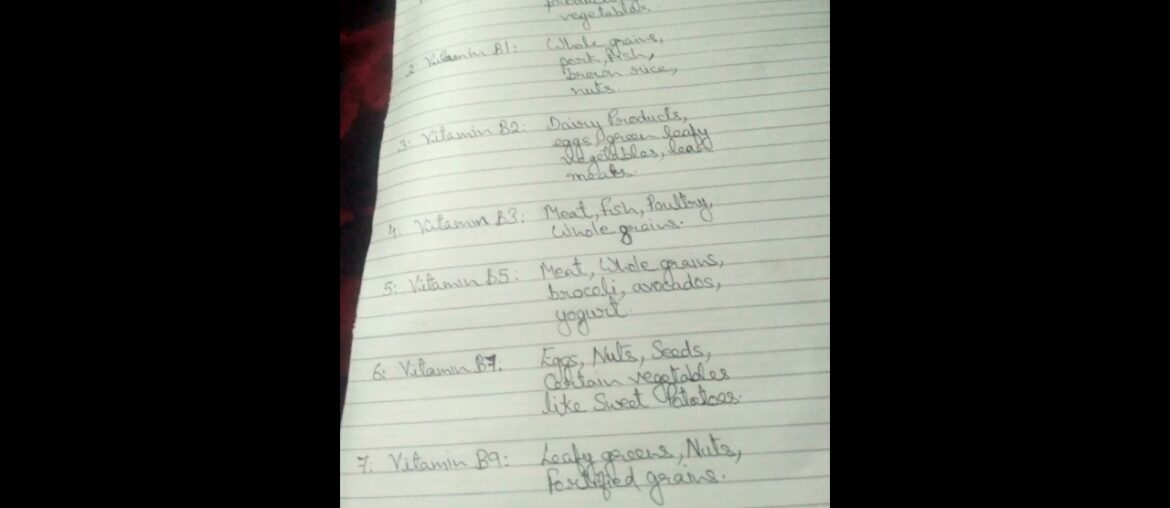 vegetables
2. Vitamin B1: Whole grains,
pork, fish,
brown rice,
nuts
3: Vitamin B2: Dairy Products,
eggs, green leafy
vegetables, lean
meats.
4. Vitamin B3: Meat, fish, Poultry,
Whole grains.
5: Vitamin B5: Meat, Whole grains,
brocoli, avocados,
yogurt.
6: Vitamin B7: Eggs, Nuts, Seeds,
Certain vegetables
like Sweet Potatoes.
7: Vitamin B9: Leafy greens, Nuts,
fortified grains.